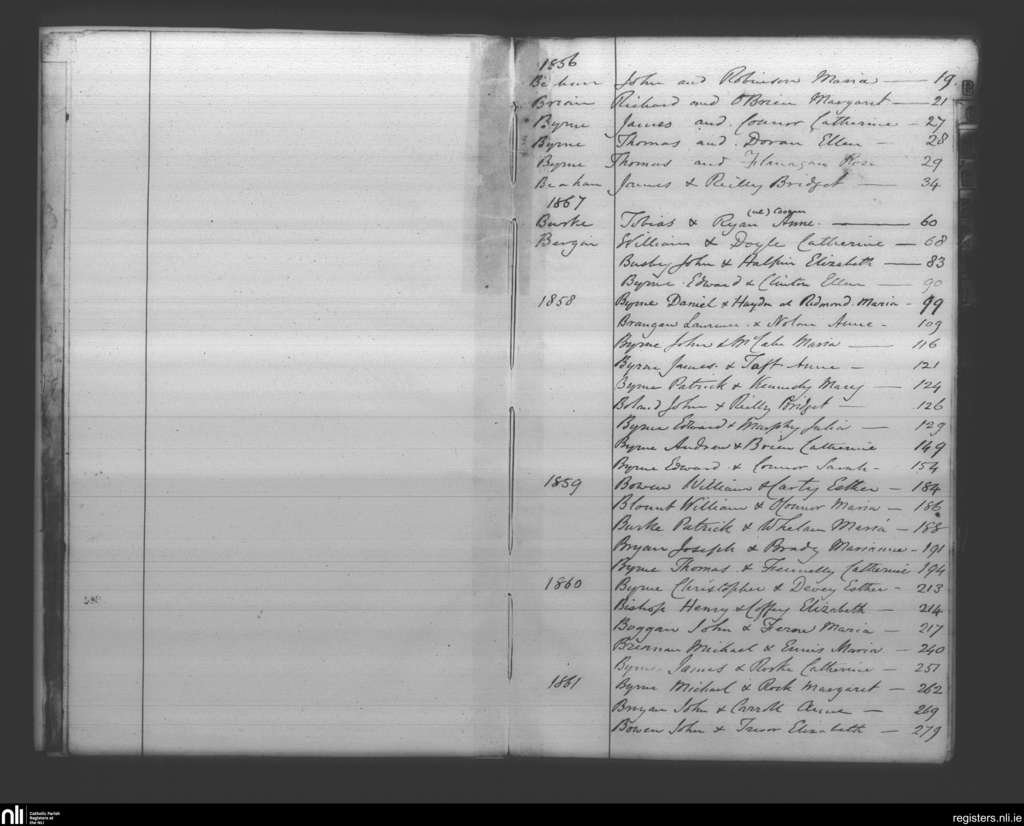 1856
John and Robinson Maria — 19.
Brien Richard and O'Brien Margaret — 21
Byrne James and Connor Catherine - 27
Byrne Thomas and Doran Ellen — 28
Byrne Thomas and Flanagan Rose 29
Beahan James & Reilly Bridget — 34
1867
Burke Tobias & Ryan Anne. — 60
Bergin William & Doyle Catherine — 68
Busby John & Halpin Elizabeth — 83
Byrne Edward & Clinton Ellen — 90
1858 Byrne Daniel & Haydn al Redmond Maria - 99
Brangan Laurence & Nolan Anne - 109
Byrne John & McCabe Maria — 116
Byrne James & Taft Anne — 121
Byrne Patrick & Kennedy Mary — 124
Boland John & Reilly Bridget — 126
Byrne Edward & Murphy Julia — 129
Byrne Andrew & Brien Catherine 149
Byrne Edward & Connor Sarah - 154
1859 Bowen William & Carty Esther - 184
Blount William & O'Connor Maria - 186
Burke Patrick & Whelan Maria - 188
Bryan Joseph & Brady Marianne - 191
Byrne Thomas & Fennelly Catherine 194
1860 Byrne Christopher & Devey Esther - 213
Bishop Henry & Coffey Elizabeth — 214
Boggan John & Maria — 217
Brennan Michael & Ennis Maria — 240
Byrne James & Rorke Catherine — 251
1861 Byrne Michael & Rock Margaret — 262
Bryan John & Carroll Anne — 269
Bowen John & Trevor Elizabeth — 279
nli
Catholic Parish
Registers at
the NLI
registers.nli.ie